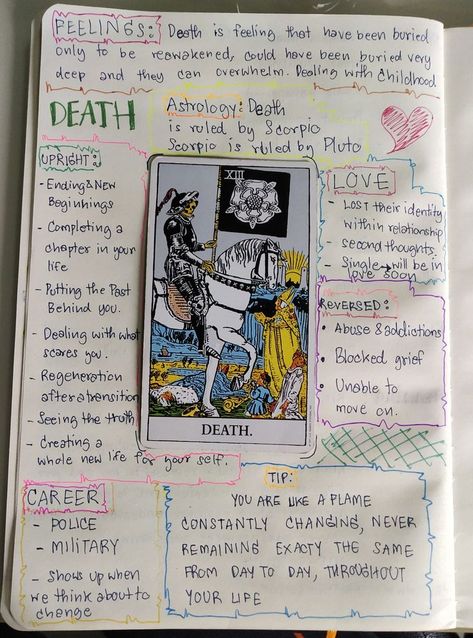 FEELINGS: Death is feeling that have been buried
only to be reawakened, could have been buried very
deep and they can overwhelm. Dealing with childhood
DEATH
Astrology: Death
is ruled by Scorpio
Scorpio is ruled by Pluto
UPRIGHT:
- Ending & New
Beginnings
- Completing a
chapter in your
life
- Putting the Past
Behind you.
- Dealing with what
scares you.
- Regeneration
after a transition
- Seeing the truth
- Creating a
whole new life for your self.
XIII
DEATH.
LOVE
- Lost their identity
within relationship
- second thoughts,
- Single → will be in
love soon
REVERSED:
• Abuse & addictions
• Blocked grief
• Unable to
move on.
CAREER
- POLICE
- MILITARY
- Shows up when
we think about to
change
TIP:
YOU ARE LIKE A FLAME
CONSTANTLY CHANGING, NEVER
REMAINING EXACTY THE SAME
FROM DAY TO DAY, THROUGHOUT
YOUR LIFE